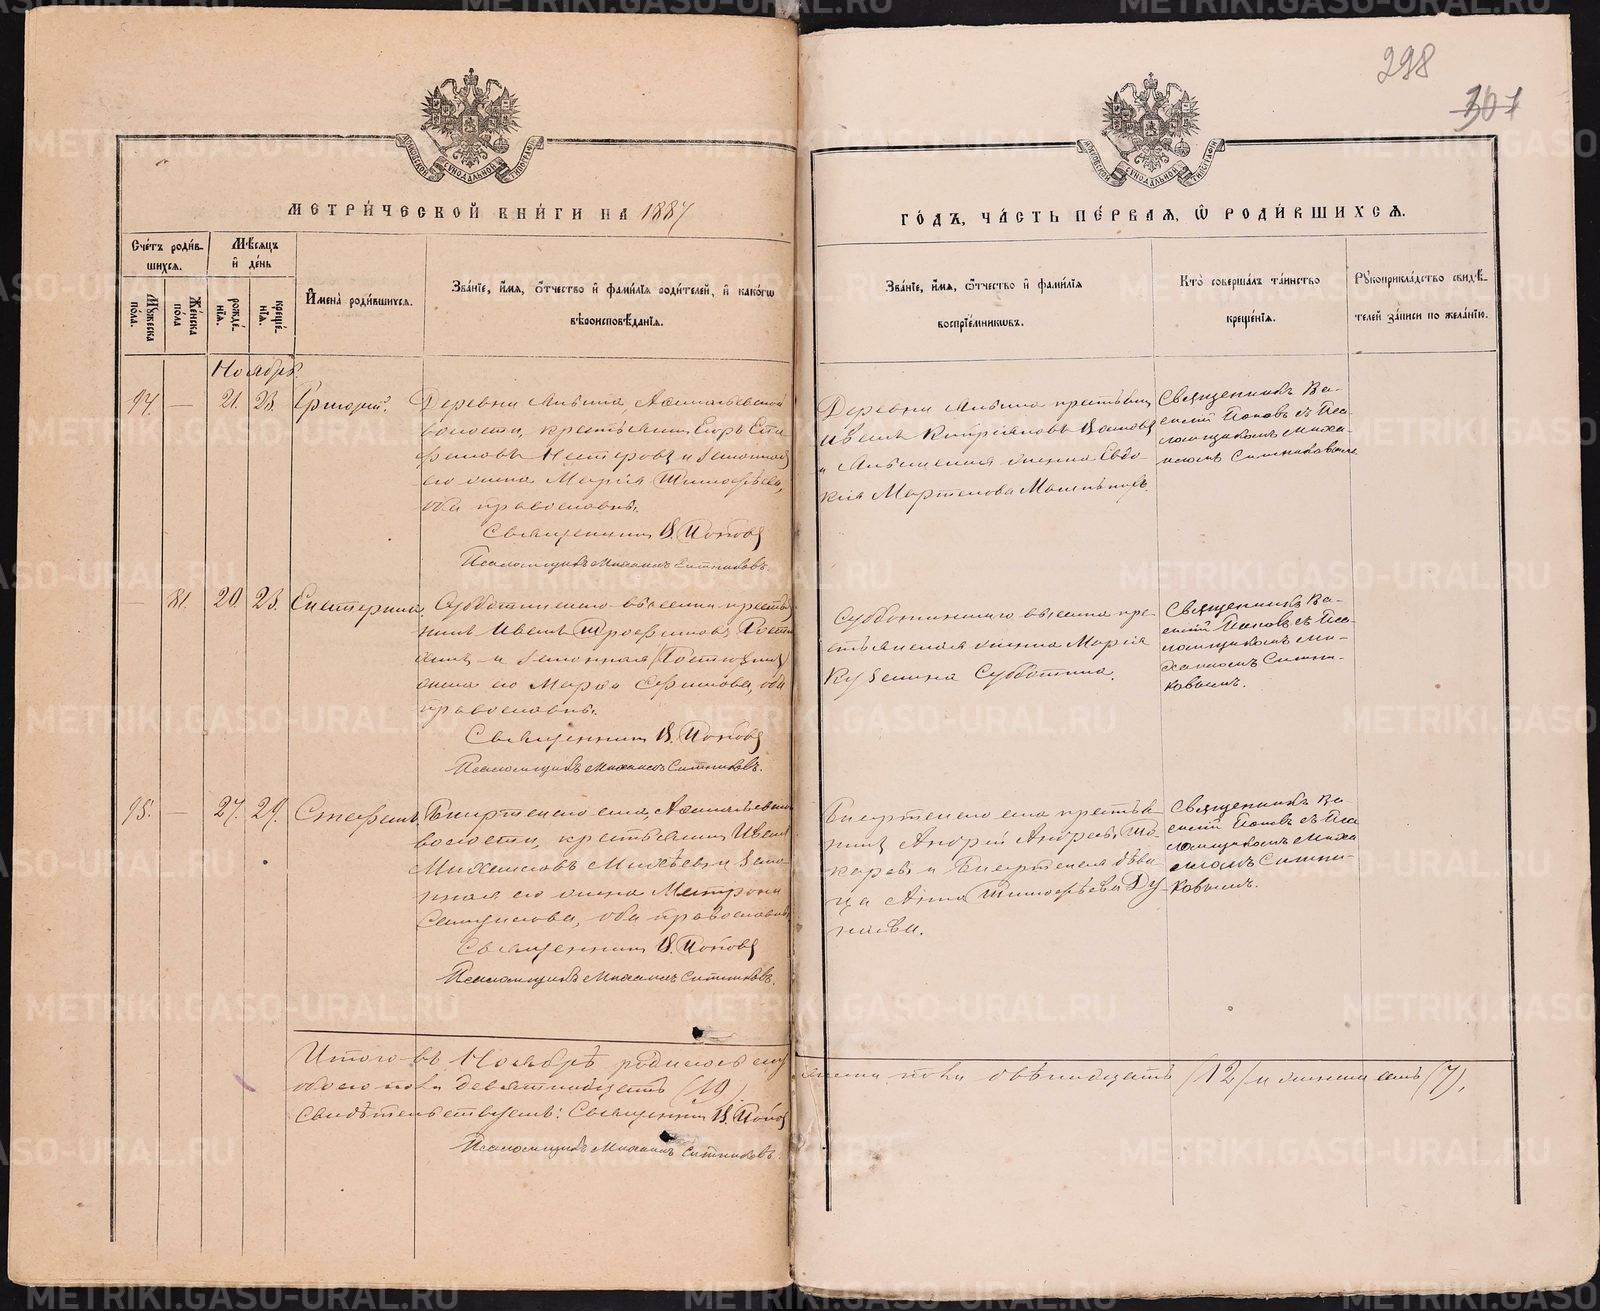 298
301
МЕТРИ́ЧЕСКОЙ КНИ́ГИ НА 1887
ГО́ДЪ, ЧА́СТЬ ПЕ́РВАЯ, Ѡ РОДИ́ВШИХСЯ.
Сче́тъ роди́в-
шихся.
Мѣсяцъ
и де́нь
Му́жеска
пола.
Же́нска
пола
рожде́-
нїя.
креще́-
нїя.
Имена̀ роди́вшихся.
Зва́нїе, и́мя, о́тчество и фами́лїя роди́телей, и како́гѡ
вѣроисповѣ́данїя.
Зва́нїе, и́мя, ѻ́тчество и фами́лїя
воспрїе́мникѡвъ.
Кто̀ соверша́лъ та́инство
креще́нїя.
Рꙋкоприкла́дство свидѣ́-
телей за́писи по жела́нїю.
Ноябрь
94. — 21. 23. Григорій.
волости, крестьянинъ Егоръ Сте-
фановъ Нестеровъ и законная
его жена Марія Тимофѣева,
оба православны.
Священникъ В. Поповъ
Псаломщикъ Михаилъ Ситниковъ.
Иванъ Кипріяновъ
жена Евдо-
кія Мартемова
Священникъ Ва-
силій Поповъ съ Пса-
ломщикомъ Миха-
иломъ Ситниковымъ
— 81. 20. 23. Екатерина
Субботинского селенія крестья-
нинъ Иванъ Трофимовъ
и законная
жена его Марѳа Ефимова, оба
православны.
Священникъ В. Поповъ
Псаломщикъ Михаилъ Ситниковъ.
Субботинского селенія кре-
стьянская жена Марія
Кузьмина Субботина.
Священникъ Ва-
силій Поповъ съ Пса-
ломщикомъ Ми-
хаиломъ Ситни-
ковымъ.
95. — 27. 29. Стефанъ
волости, крестьянинъ Иванъ
Михайловъ Михѣевъ и закон-
ная его жена Матрона
оба православны
Священникъ В. Поповъ
Псаломщикъ Михаилъ Ситниковъ.
села крестья-
нинъ Андрей Андреевъ Ма-
каровъ и дѣви-
ца Анна Тимофѣева Ду-
наева.
Священникъ Ва-
силій Поповъ съ Пса-
ломщикомъ Миха-
иломъ Ситни-
ковымъ.
Итого въ Ноябрѣ родилось
обоего пола девятнадцать (19)
пола двѣнадцать (12) и женска семь (7).
Свидѣтельствуемъ: Священникъ В. Поповъ
Псаломщикъ Михаилъ Ситниковъ.
METRIKI.GASO-URAL.RU